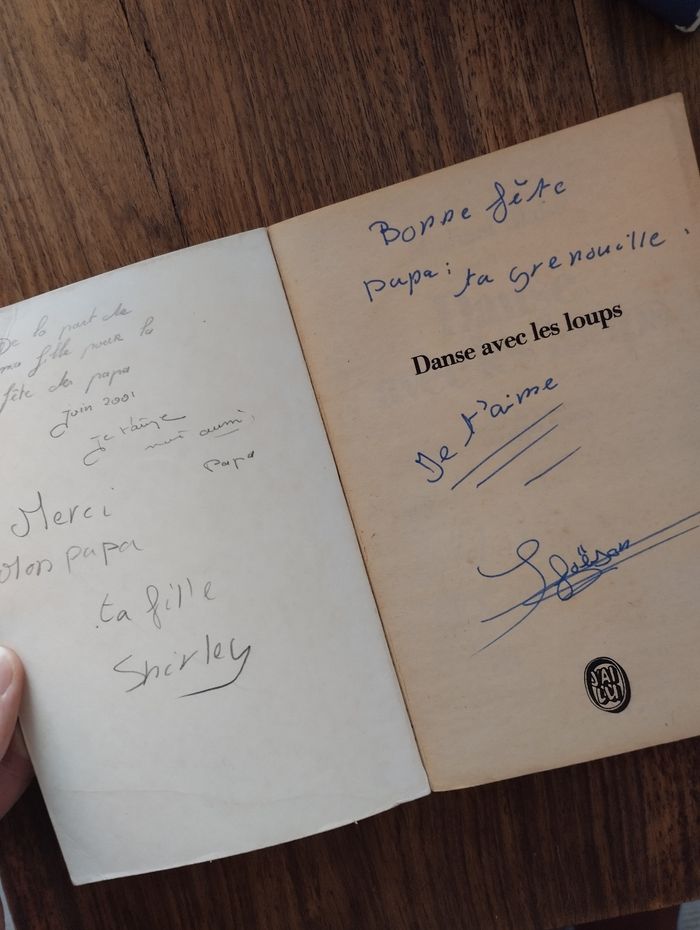 De la part de
ma fille pour la
fête des papa
Juin 2001
Je t'aime
moi aussi
papa
Merci
Mon papa
ta fille
Shirley
Bonne fête
papa : ta grenouille.
Danse avec les loups
Je t'aime
J'AI
LU